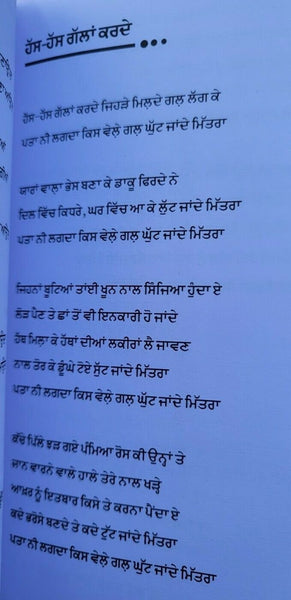 ਹੱਸ-ਹੱਸ ਗੱਲਾਂ ਕਰਦੇ ...
ਹੱਸ-ਹੱਸ ਗੱਲਾਂ ਕਰਦੇ ਜਿਹੜੇ ਮਿਲ਼ਦੇ ਗਲ਼ ਲੱਗ ਕੇ
ਪਤਾ ਨੀ ਲਗਦਾ ਕਿਸ ਵੇਲ਼ੇ ਗਲ਼ ਘੁੱਟ ਜਾਂਦੇ ਮਿੱਤਰਾ
ਯਾਰਾਂ ਵਾਲ਼ਾ ਭੇਸ ਬਣਾ ਕੇ ਡਾਕੂ ਫਿਰਦੇ ਨੇ
ਦਿਲ ਵਿੱਚ ਕਿਧਰੇ, ਘਰ ਵਿੱਚ ਆ ਕੇ ਲੁੱਟ ਜਾਂਦੇ ਮਿੱਤਰਾ
ਪਤਾ ਨੀ ਲਗਦਾ ਕਿਸ ਵੇਲ਼ੇ ਗਲ਼ ਘੁੱਟ ਜਾਂਦੇ ਮਿੱਤਰਾ
ਜਿਹਨਾਂ ਬੂਟਿਆਂ ਤਾਂਈ ਖੂਨ ਨਾਲ ਸਿੰਜਿਆ ਹੁੰਦਾ ਏ
ਲੋੜ ਪੈਣ ਤੇ ਛਾਂ ਤੋਂ ਵੀ ਇਨਕਾਰੀ ਹੋ ਜਾਂਦੇ
ਹੱਥ ਮਿਲਾ ਕੇ ਹੱਥਾਂ ਦੀਆਂ ਲਕੀਰਾਂ ਲੈ ਜਾਵਣ
ਨਾਲ ਤੋਰ ਕੇ ਡੂੰਘੇ ਟੋਏ ਸੁੱਟ ਜਾਂਦੇ ਮਿੱਤਰਾ
ਪਤਾ ਨੀ ਲਗਦਾ ਕਿਸ ਵੇਲ਼ੇ ਗਲ਼ ਘੁੱਟ ਜਾਂਦੇ ਮਿੱਤਰਾ
ਕੱਚੇ ਪਿੱਲੇ ਝੜ ਗਏ ਪੰਮਿਆ ਰੋਸ ਕੀ ਉਨ੍ਹਾਂ ਤੇ
ਜਾਨ ਵਾਰਨੇ ਵਾਲੇ ਹਾਲੇ ਤੇਰੇ ਨਾਲ ਖੜ੍ਹੇ
ਆਖ਼ਰ ਨੂੰ ਇਤਬਾਰ ਕਿਸੇ ਤੇ ਕਰਨਾ ਪੈਂਦਾ ਏ
ਕਦੇ ਭਰੋਸੇ ਬਣਦੇ ਤੇ ਕਦੇ ਟੁੱਟ ਜਾਂਦੇ ਮਿੱਤਰਾ
ਪਤਾ ਨੀ ਲਗਦਾ ਕਿਸ ਵੇਲ਼ੇ ਗਲ਼ ਘੁੱਟ ਜਾਂਦੇ ਮਿੱਤਰਾ